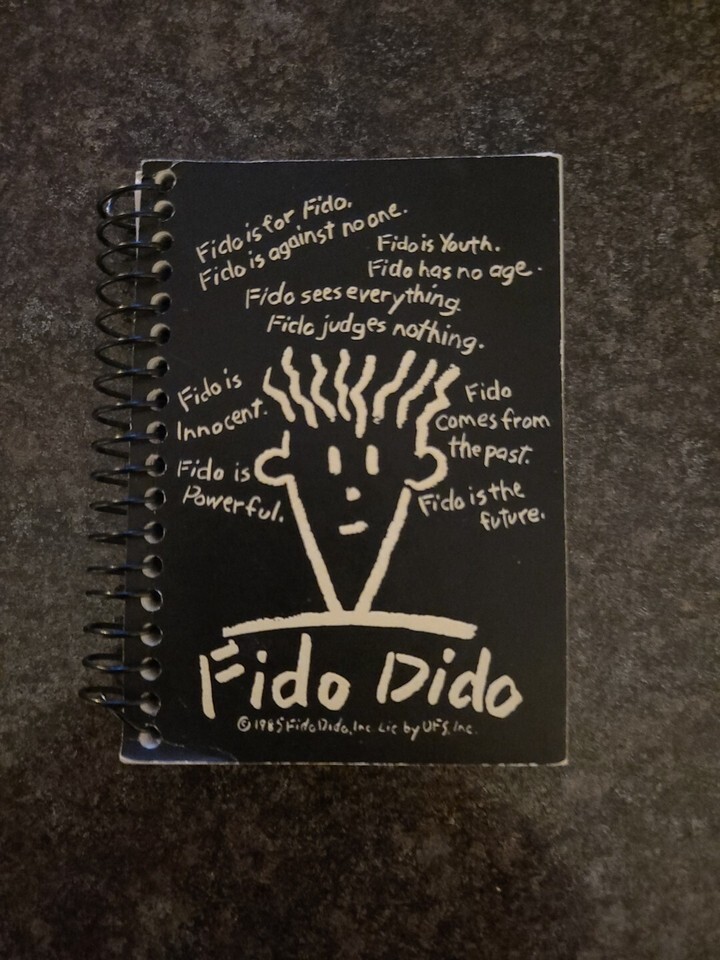 Fido is for Fido.
Fido is against no one.
Fido is Youth.
Fido has no age.
Fido sees everything.
Fido judges nothing.
Fido is
Innocent.
Fido is
Powerful.
Fido
comes from
the past.
Fido is the
future.
Fido Dido
© 1985 Fido Dido, Inc. Lic by UFS, Inc.